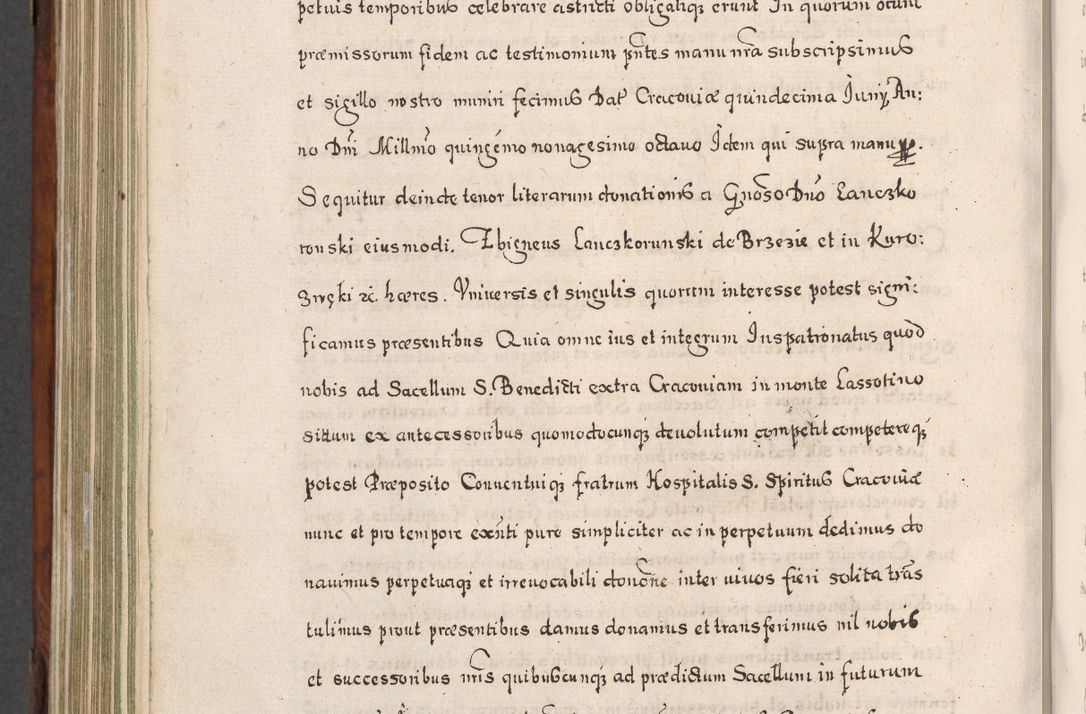 petuis temporibus celebrare astricti obligatiq; erunt In quorum omni
præmissorum fidem ac testimonium pñtes manu nrã subscripsimus
et sigillo nostro muniri fecimus Dat Cracoviæ quindecima Junÿ, An:
no Dñi Millmõ quingẽmo nonagesimo octavo Idem qui supra manu pp.
Sequitur deinde tenor literarum donationis a Gnõso Dnõ Lanczko
ronski eiusmodi. Zbigneus Lanczkorunski de Brzezie et in Kuro:
Zwęki etc. hæres. Vniuersis et singulis quorum interesse potest signi:
ficamus præsentibus Quia omne ius et integrum Juspatronatus quod
nobis ad Sacellum S. Benedicti extra Cracouiam in monte Lassotino
situm ex antecessoribus quomodocunq; deuolutum competit competereq;
potest Præposito Conuentuiq; fratrum Hospitalis S. Spiritus Cracouiæ
nunc et pro tempore exñti pure simpliciter ac in perpetuum dedimus do
nauimus perpetuaq; et irreuocabili donõne inter uiuos fieri solita trãs
tulimus prout præsentibus damus donamus et transferimus nil nobis
et successoribus nris quibuscunq; ad prædictum Sacellum in futurum